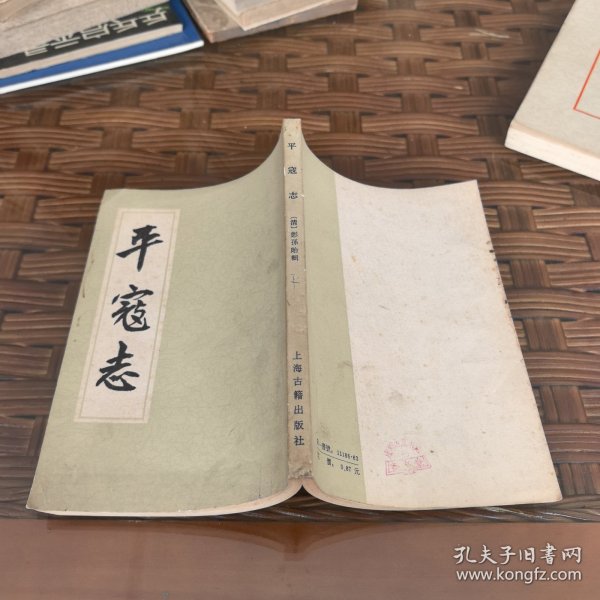 平寇志
平寇志
〔清〕彭孫貽輯
上海古籍出版社
书号：11186·82
定價：0.87元
孔夫子旧书网
www.kongfz.com